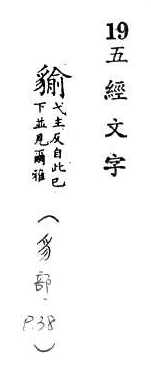 19 五經文字
貐 弋主反自此已
下並見爾雅
(豸部, P.38)